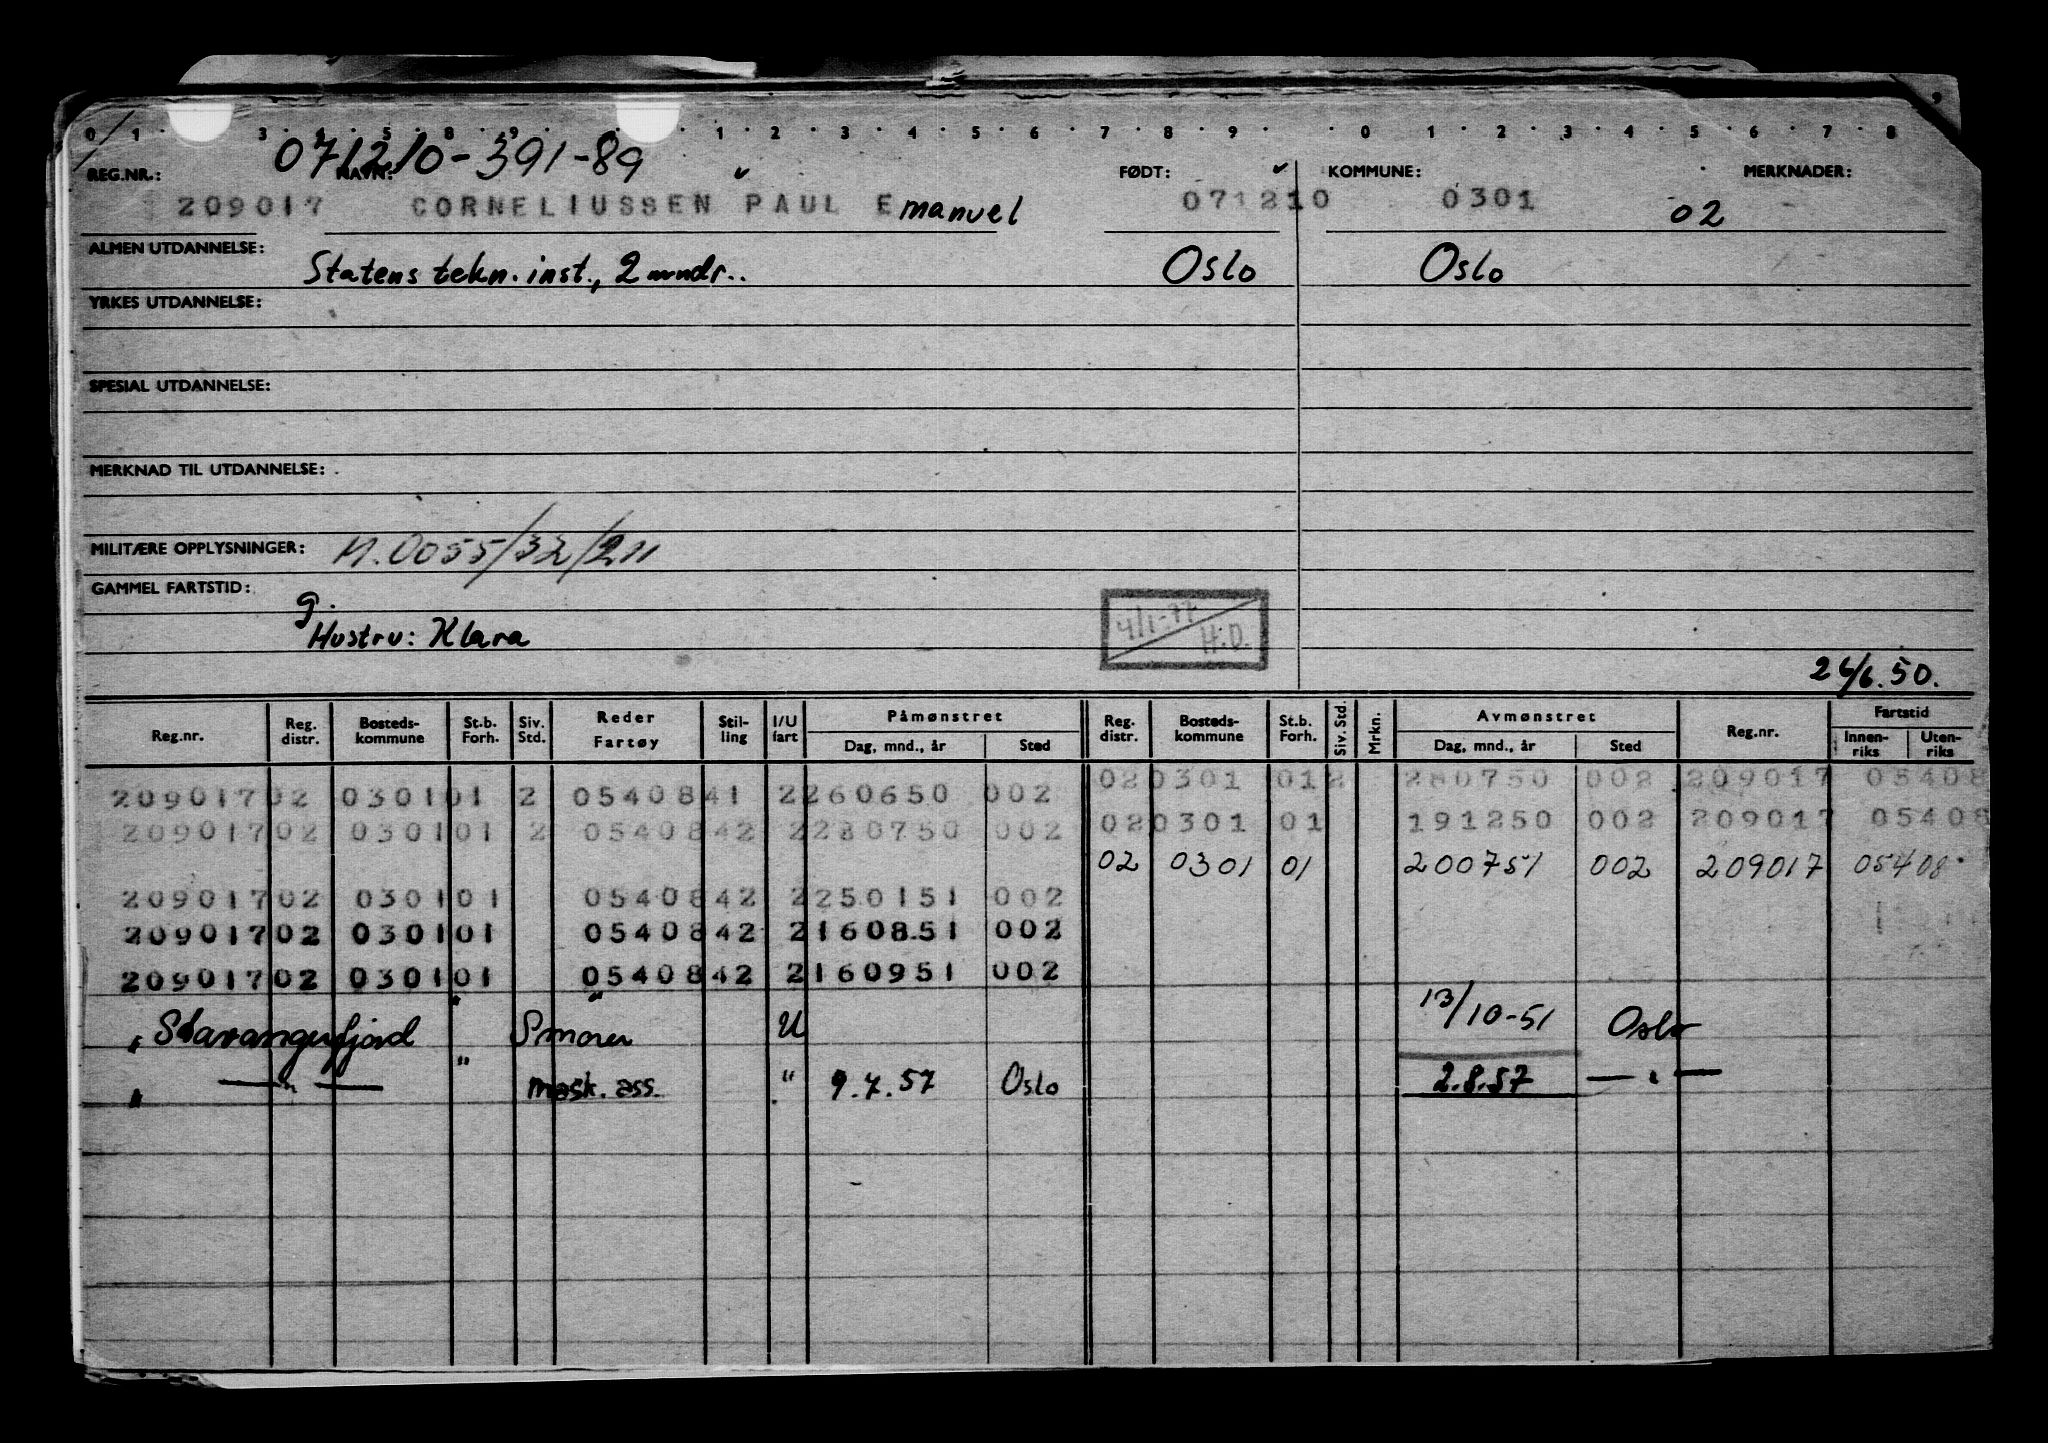 0 1 3 4 5 8 9 1 2 3 4 5 6 7 8 9 0 1 2 3 4 5 6 7 8 9
071210-391-89
REG.NR.: NAVN: FØDT: KOMMUNE: MERKNADER:
209017 CORNELIUSSEN PAUL Emanuel 071210 0301 02
ALMEN UTDANNELSE: Statens tekn. inst., 2 mndr.. Oslo Oslo
YRKES UTDANNELSE:
SPESIAL UTDANNELSE:
MERKNAD TIL UTDANNELSE:
MILITÆRE OPPLYSNINGER: M.0055/32/211
GAMMEL FARTSTID: g.
Hustru: Klara
4/1-77 H.O.
26/6.50.
Reg.nr. Reg. distr. Bosteds-kommune St.b. Forh. Siv. Std. Reder Fartøy Stil-ling I/U fart Påmønstret Dag, mnd., år Sted Reg. distr. Bosteds-kommune St.b. Forh. Siv. Std. Mrkn. Avmønstret Dag, mnd., år Sted Reg.nr. Fartstid Innen-riks Uten-riks
209017 02 0301 01 2 05408 41 2 260650 002 02 0301 01 2 280750 002 209017 05408
209017 02 0301 01 2 05408 42 2 280750 002 02 0301 01 191250 002 209017 05408
02 0301 01 200751 002 209017 05408
209017 02 0301 01 05408 42 2 250151 002
209017 02 0301 01 05408 42 2 160851 002
209017 02 0301 01 05408 42 2 160951 002
" Stavangerfjord " Smører " U 13/10-51 Oslo
" — " — " mask. ass. " 9.7.57 Oslo 2.8.57 — " —